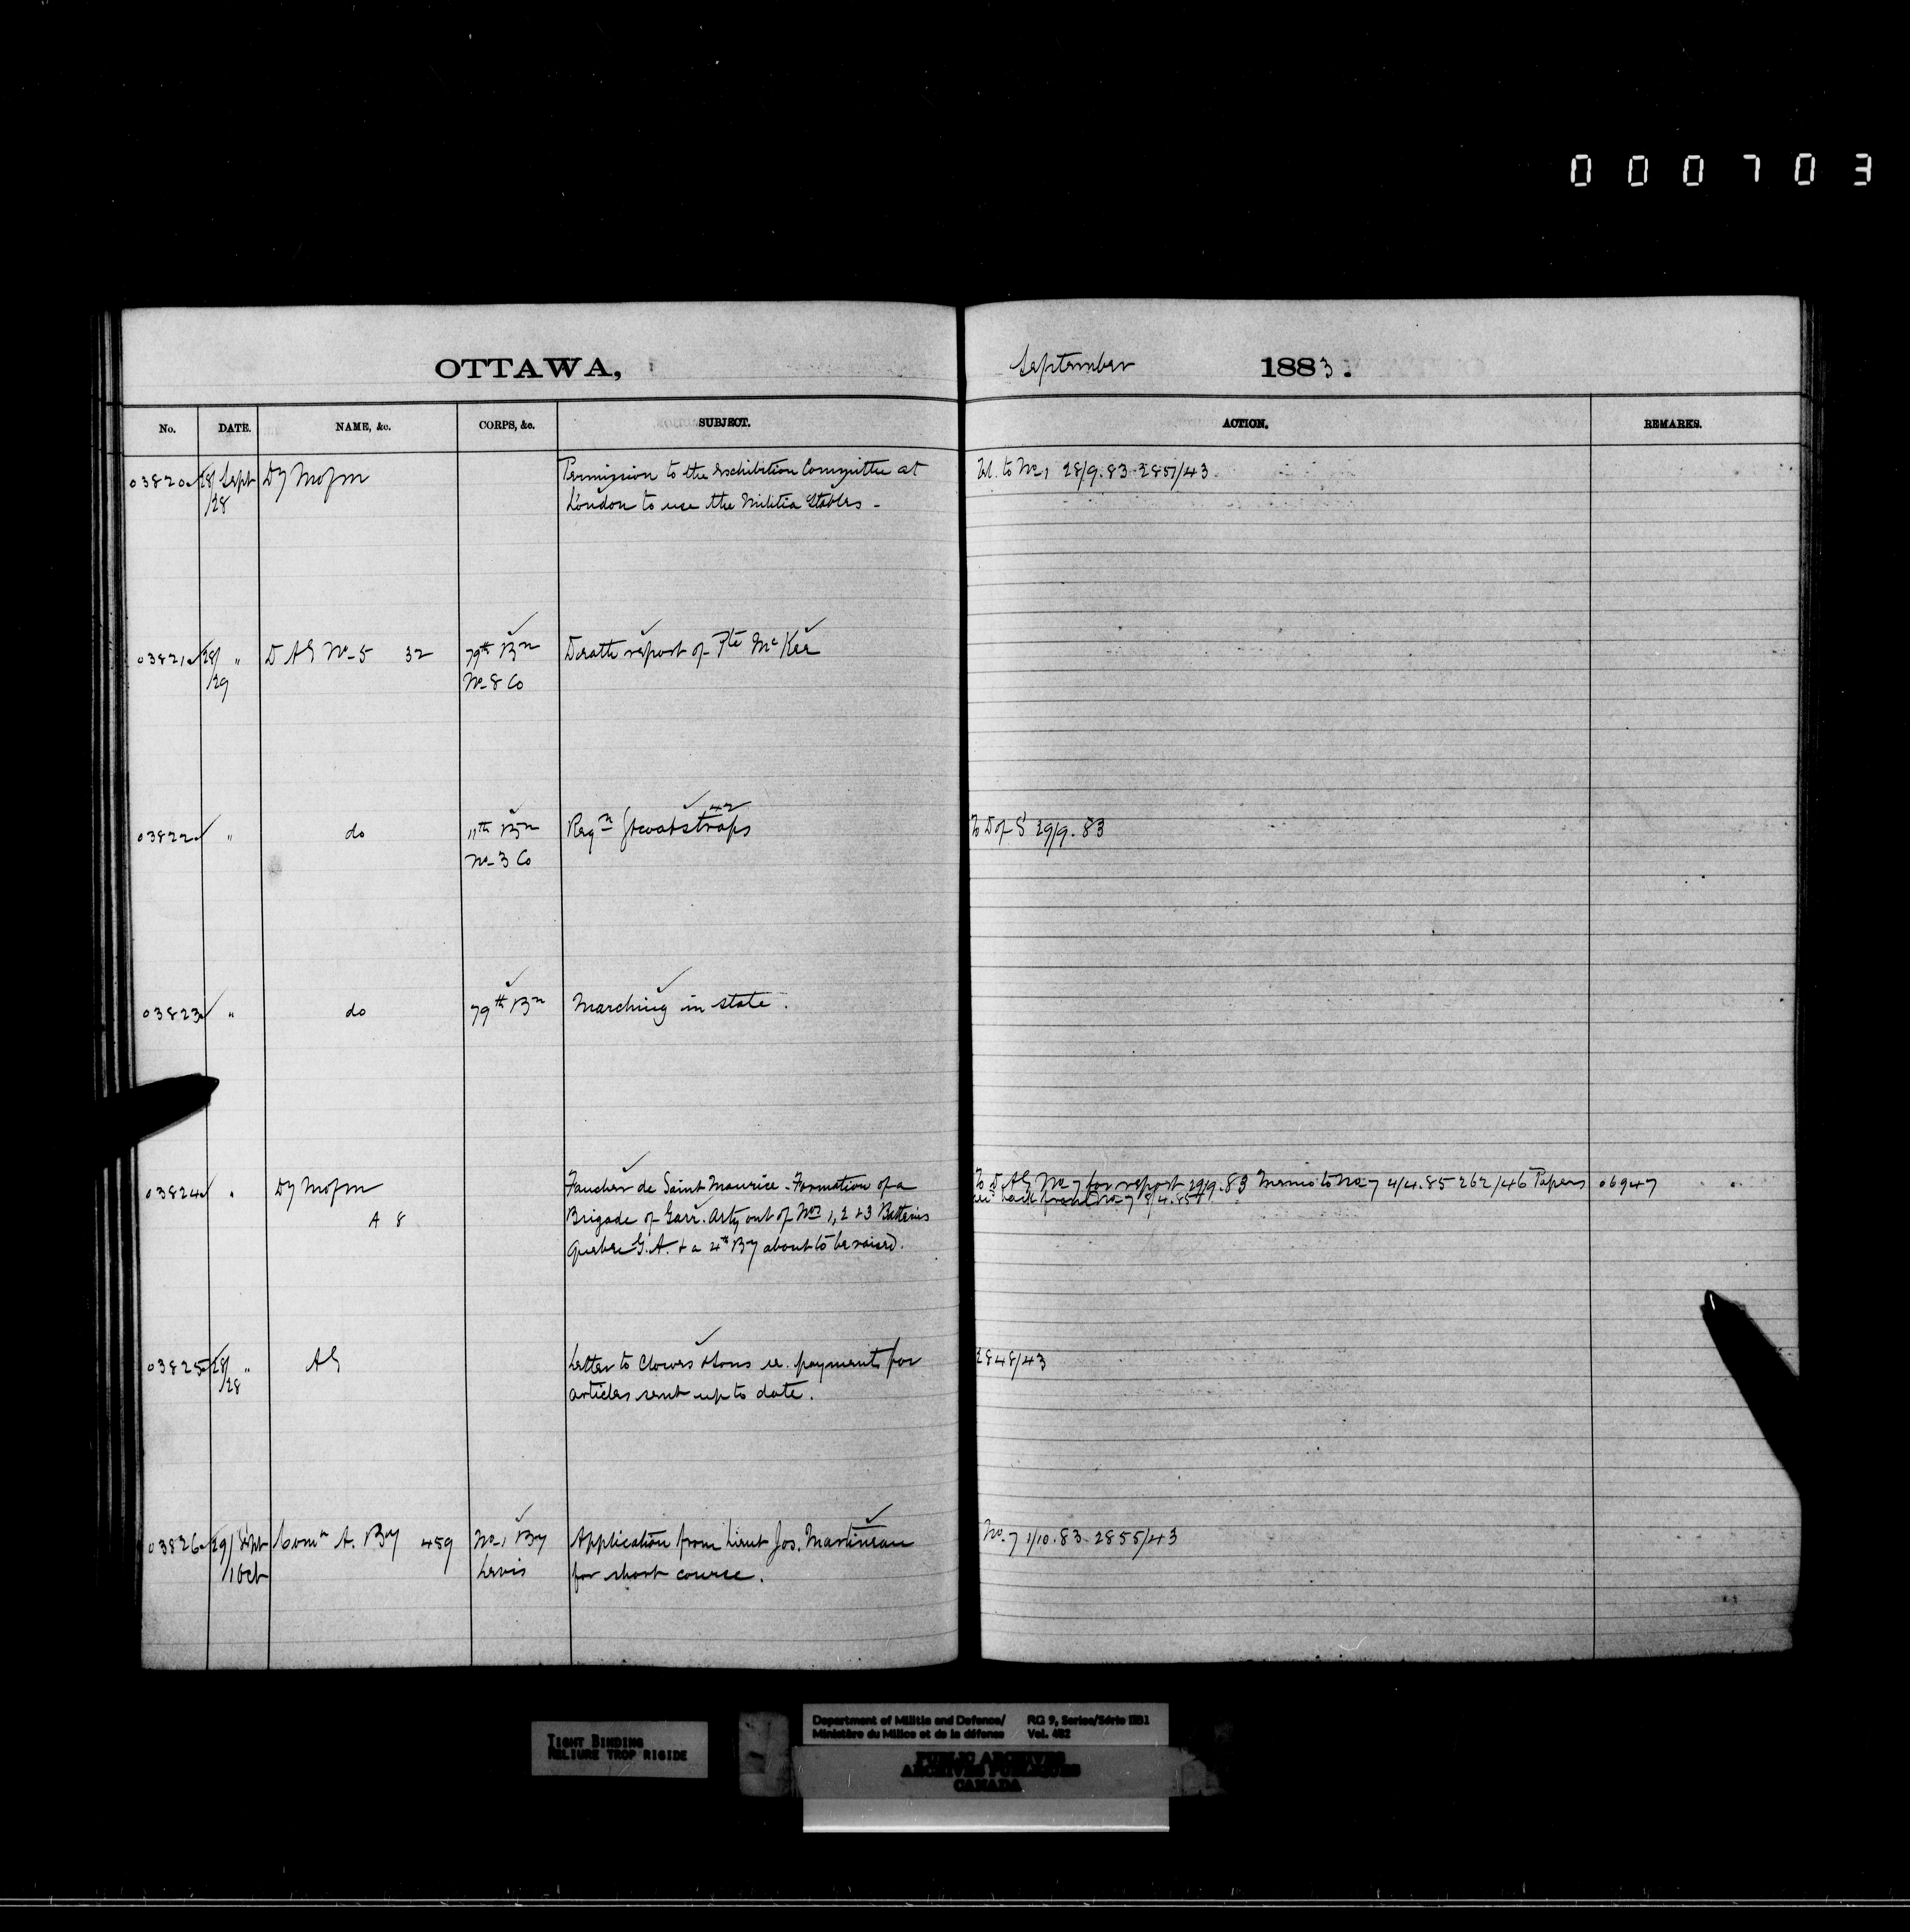 000703
OTTAWA, September 1883.
No. DATE. NAME, &c. CORPS, &c. SUBJECT. ACTION. REMARKS.
03820 28/ Sept Dy Mofm Permission to the Exhibition Committee at Tel. to No 1 28/9.83 2851/43
/28 London to use the Militia Stables -
03821 28/ " D AG No 5 32 79th Bn Death report of Pte McKee
/29 No 8 Co
03822 " do 11th Bn Reqn Gtcoatstraps 42 To D of S 29/9.83
No 3 Co
03823 " do 79th Bn Marching in state.
03824 " Dy Mofm Faucher de Saint Maurice - Formation of a To D AG No 7 for report 29/9.83 Memo to No 7 4/4.85 262/46 Papers 06947
back from No 7 8/4.85
A 8 Brigade of Garr. Arty out of Nos 1, 2 & 3 Batteries
Quebec G.A. & a 4th By about to be raised.
03825 28/ " AG Letter to Clowes & Sons re. payments for 2848/43
/28 articles sent up to date.
03826 29/ Sept Comr A. By 459 No 1 By Application from Lieut Jos. Martineau No. 7 1/10.83 2855/43
/1 Oct Levis for short course.
TIGHT BINDING
RELIURE TROP RIGIDE
Department of Militia and Defence/ RG 9, Series/Série IIB1
Ministère du Milice et de la défense Vol. 482
PUBLIC ARCHIVES
ARCHIVES PUBLIQUES
CANADA